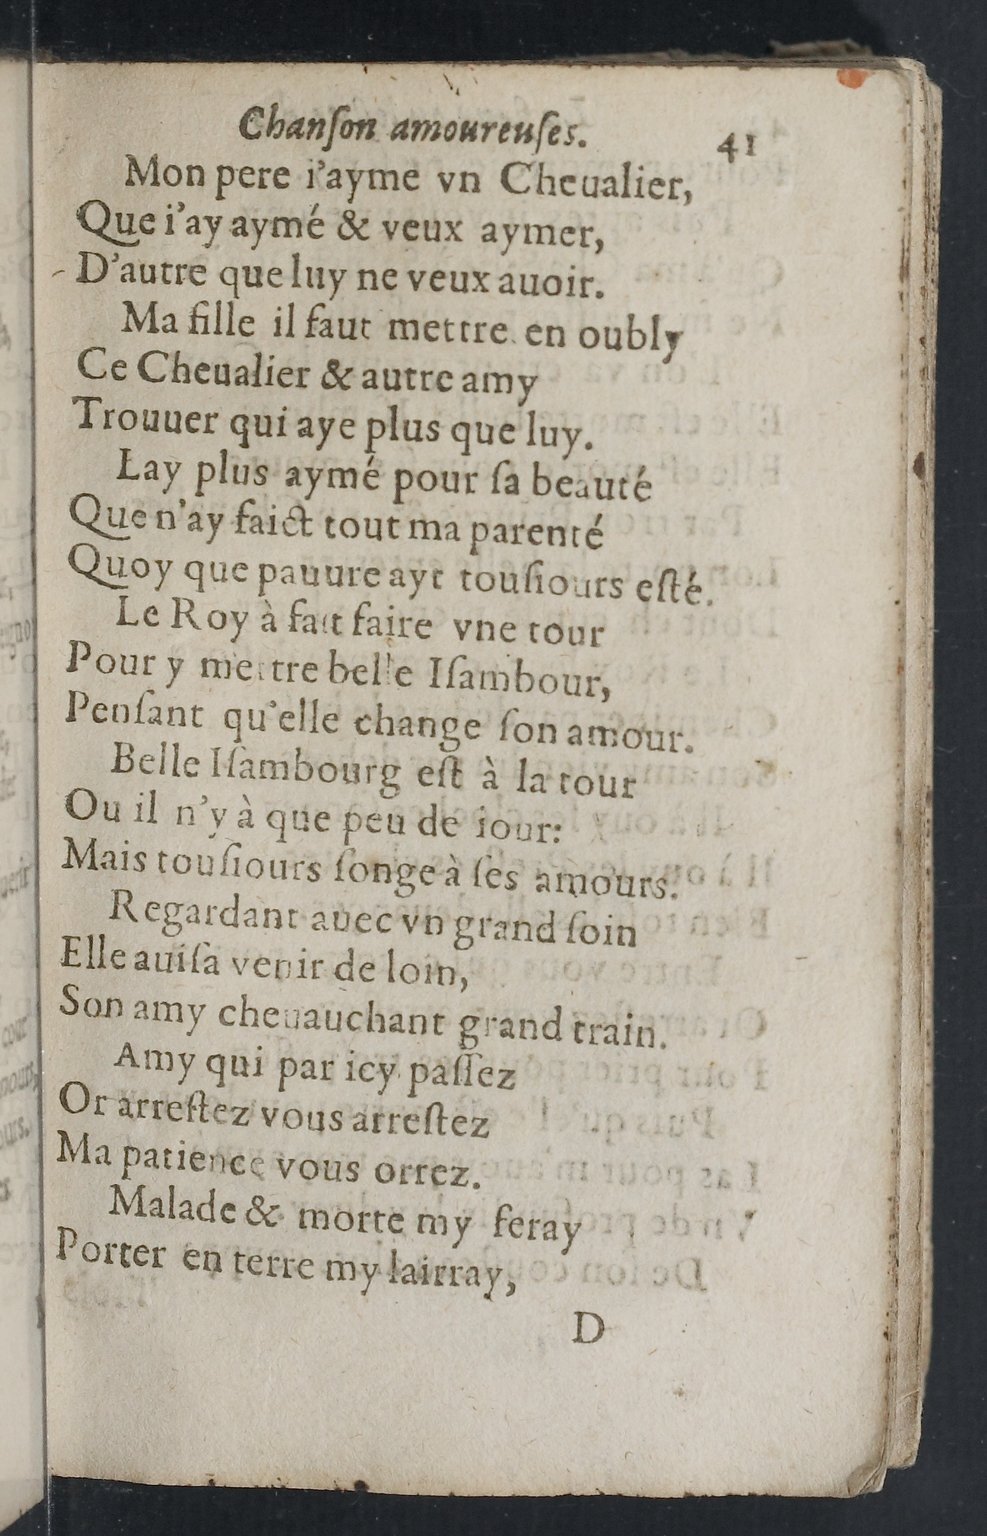 Chanſon amoureuſes. 41
Mon pere i'ayme vn Cheualier,
Que i'ay aymé & veux aymer,
D'autre que luy ne veux auoir.
Ma fille il faut mettre en oubly
Ce Cheualier & autre amy
Trouuer qui aye plus que luy.
Lay plus aymé pour ſa beauté
Que n'ay faict tout ma parenté
Quoy que pauure ayt touſiours eſté.
Le Roy à fait faire vne tour
Pour y mettre belle Iſambour,
Penſant qu'elle change ſon amour.
Belle Iſambourg eſt à la tour
Ou il n'y à que peu de iour:
Mais touſiours ſonge à ſes amours.
Regardant auec vn grand ſoin
Elle auiſa venir de loin,
Son amy cheuauchant grand train.
Amy qui par icy paſſez
Or arreſtez vous arreſtez
Ma patience vous orrez.
Malade & morte my feray
Porter en terre my lairray,
D